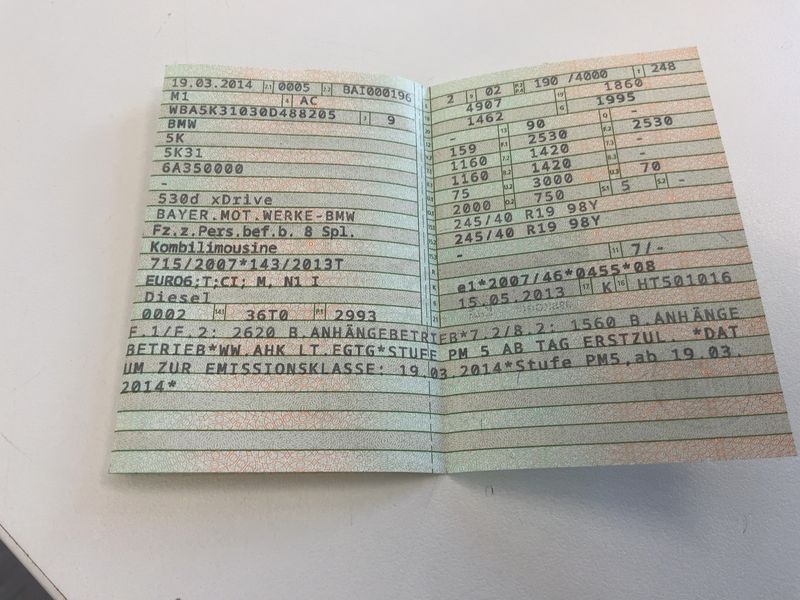 19.03.2014 2.1 0005 2.2 BAI000196
M1 4 AC
WBA5K31030D488205 3 9
BMW
5K
5K31
6A350000
-
530d xDrive
BAYER.MOT.WERKE-BMW
Fz.z.Pers.bef.b. 8 Spl.
Kombilimousine
715/2007*143/2013T
EURO6;T;CI; M, N1 I
Diesel
0002 14.1 36T0 P.1 2993
2 9 02 P.2 P.4 190 /4000 T 248
4907 1860
1462 G 1995
- 13 90 Q -
159 F.1 2530 F.2 2530
1160 7.2 1420 7.3 -
1160 8.2 1420 8.3 -
75 U.2 3000 U.3 70
2000 O.2 750 S.1 5 S.2 -
245/40 R19 98Y
245/40 R19 98Y
-
11 7/-
e1*2007/46*0455*08
15.05.2013 17 K 16 HT501016
F.1/F.2: 2620 B.ANHÄNGEBETRIEB*7.2/8.2: 1560 B.ANHÄNGE
BETRIEB*WW.AHK LT.EGTG*STUFE PM 5 AB TAG ERSTZUL. *DAT
UM ZUR EMISSIONSKLASSE: 19.03.2014*Stufe PM5,ab 19.03.
2014*